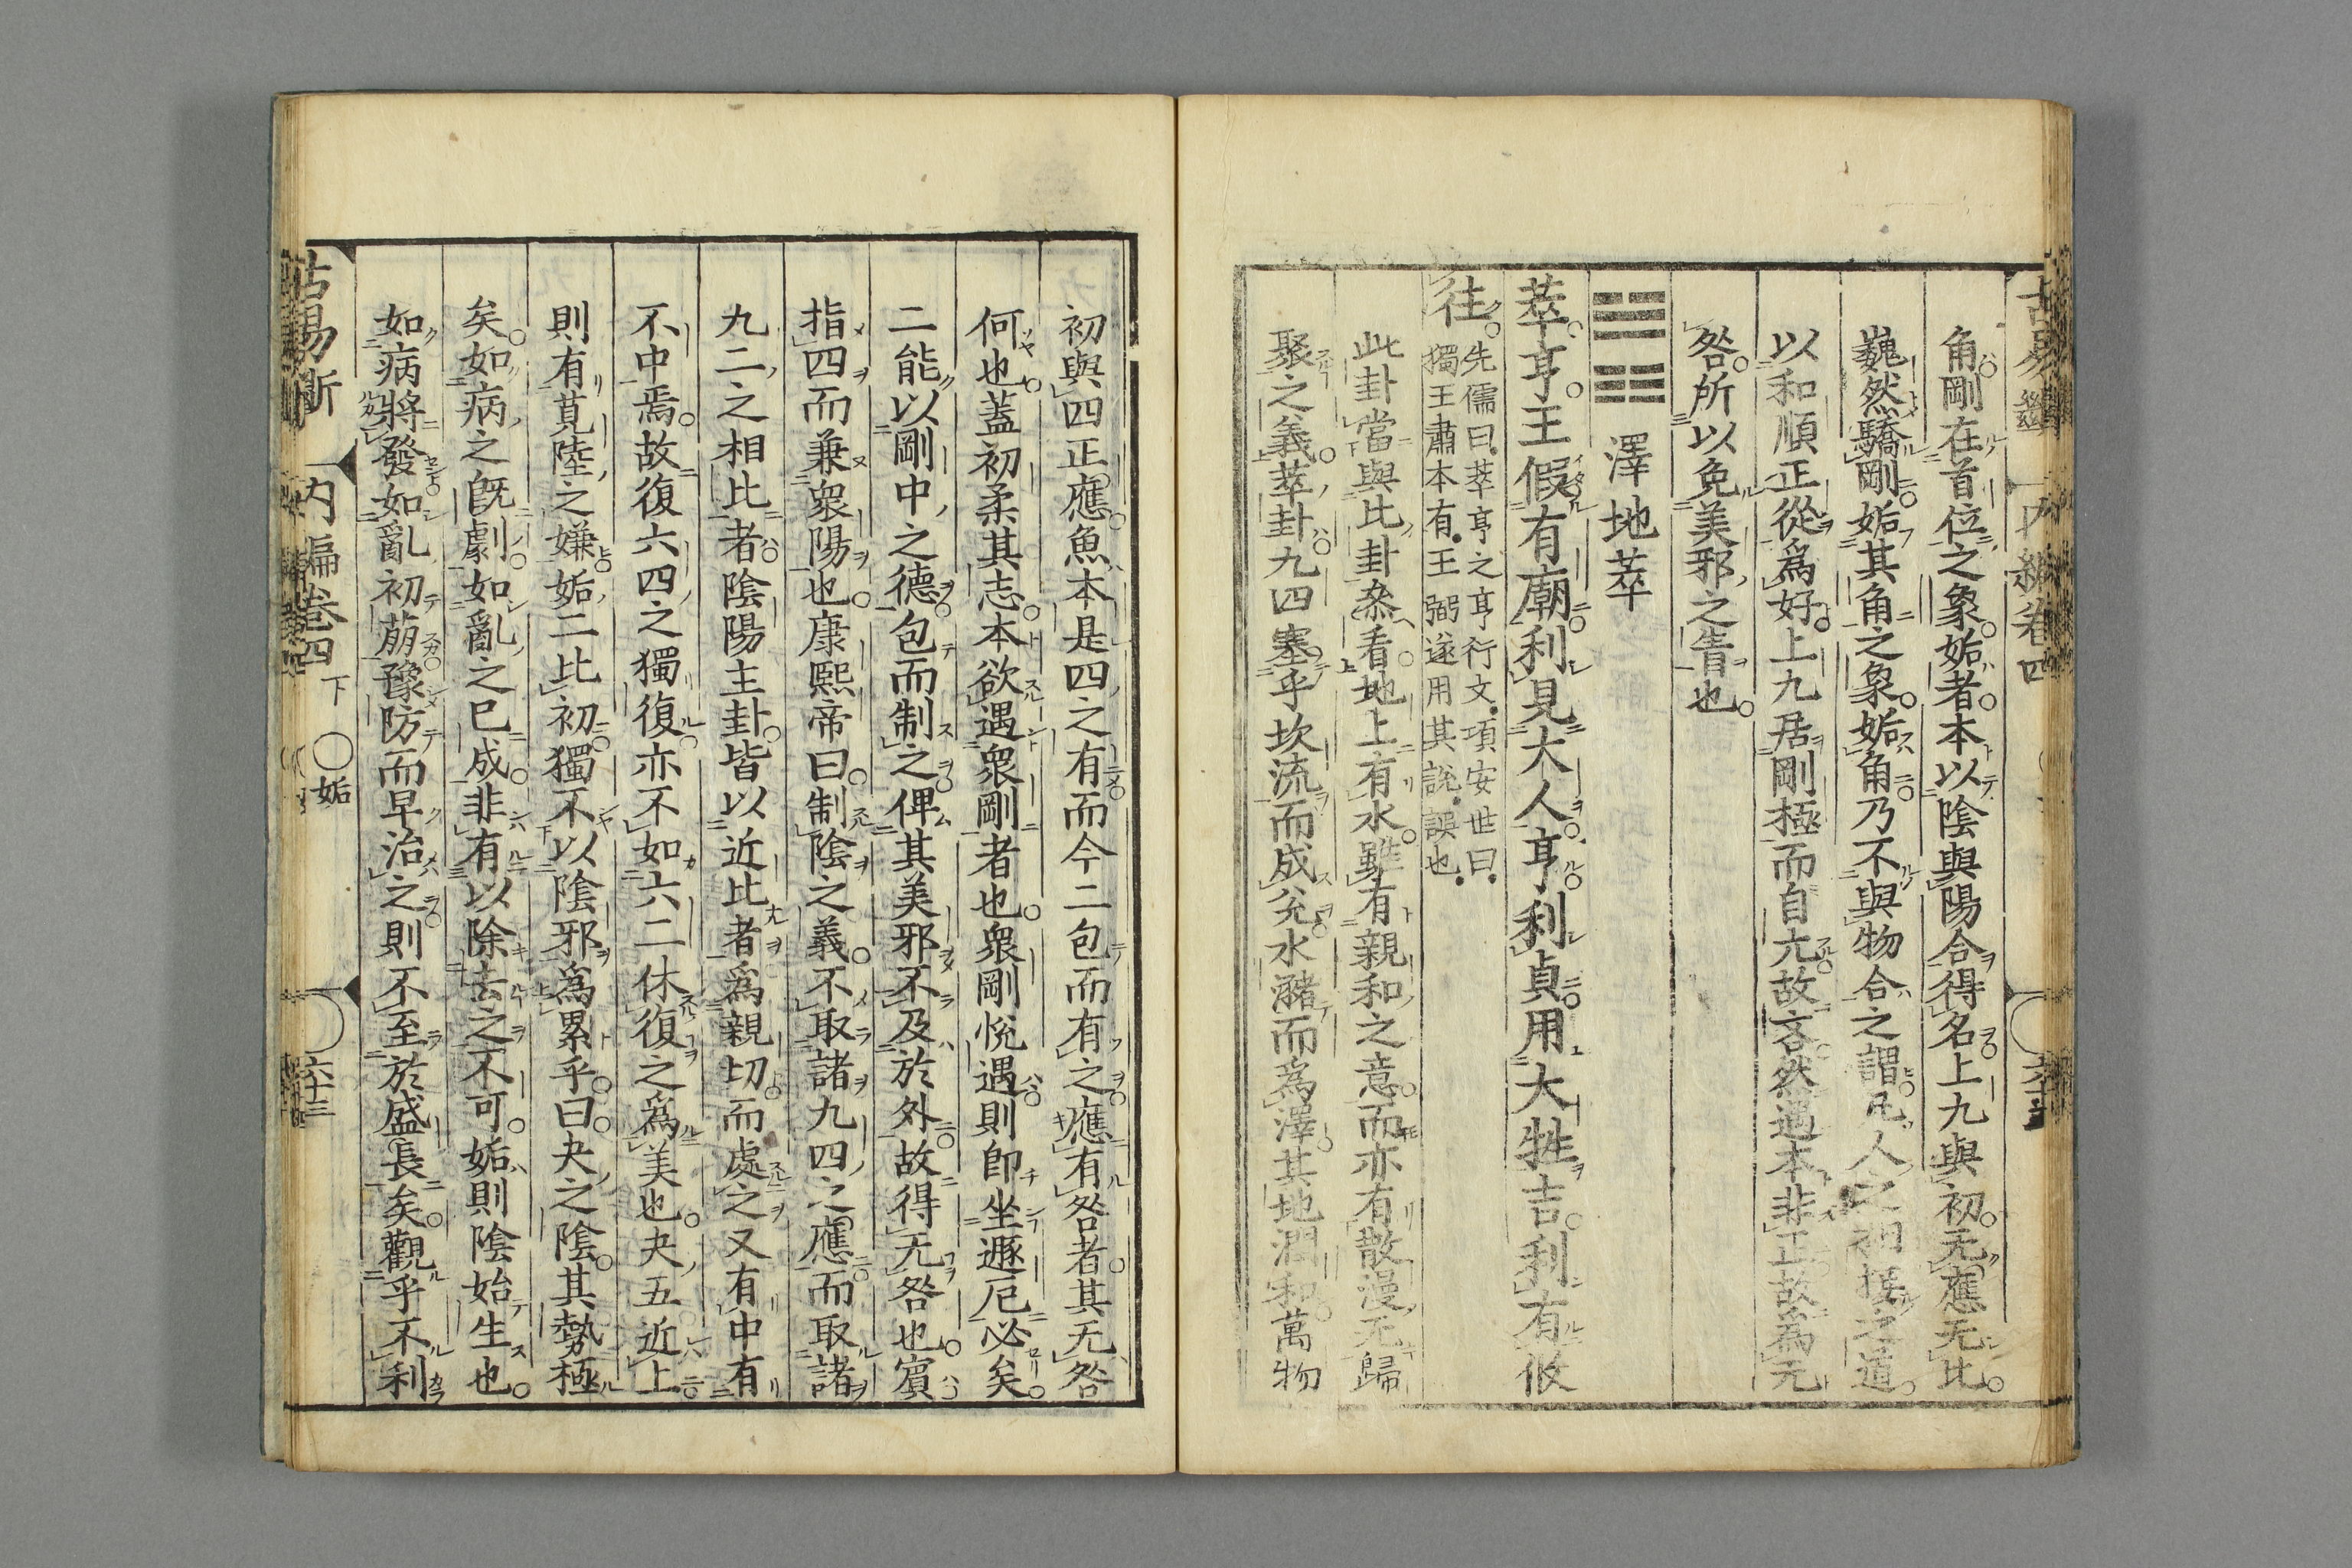 角剛在首位之象姤者本以陰與陽合得名上九與初无應无比
巍然驕剛姤其角之象姤角乃不與物合之謂凡人之相接之道
以和順正從爲好上九居剛極而自亢故吝然遇本非正故爲无
咎所以免美邪之眚也
澤地萃
萃亨王假有廟利見大人亨利貞用大牲吉利有攸
往
先儒曰萃亨之亨行文項安世曰
獨王肅本有王弼遂用其說誤也
此卦當與比卦叅看地上有水雖有親和之意而亦有散漫无歸
聚之義萃卦九四塞乎坎流而成兊水瀦而為澤其地潤和萬物
初與四正應魚本是四之有而今二包而有之應有咎者其无咎
何也蓋初柔其志本欲遇衆剛者也衆剛悅遇則卽坐遯厄必矣
二能以剛中之德包而制之俾其美邪不及於外故得无咎也賔
指四而兼衆陽也康熙帝曰制陰之義不取諸九四之應而取諸
九二之相比者陰陽主卦皆以近比者爲親切而處之又有中有
不中焉故復六四之獨復亦不如六二休復之爲美也夬五近上
則有莧陸之嫌姤二比初獨不以陰邪爲累乎曰夬之陰其勢極
矣如病之旣劇如亂之已成非有以除去之不可姤則陰始生也
如病將發如亂初萠豫防而早治之則不至於盛長矣觀乎不利
古易斷
内編卷四
下
姤
六十三